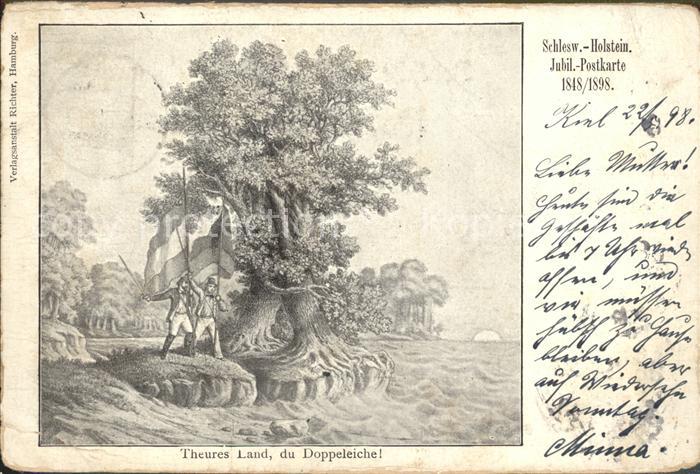 Schlesw.-Holstein.
Jubil.-Postkarte
1848/1898.
Kiel 22/5 98.
Liebe Mutter!
Heute sind die
Geschäfte mal
bis 7 Uhr wied
offen, und
wir müssen
hübsch zu Hause
bleiben, aber
auf Wiedersehn
Sonntag.
Minna.
Verlagsanstalt Richter, Hamburg.
Theures Land, du Doppeleiche!